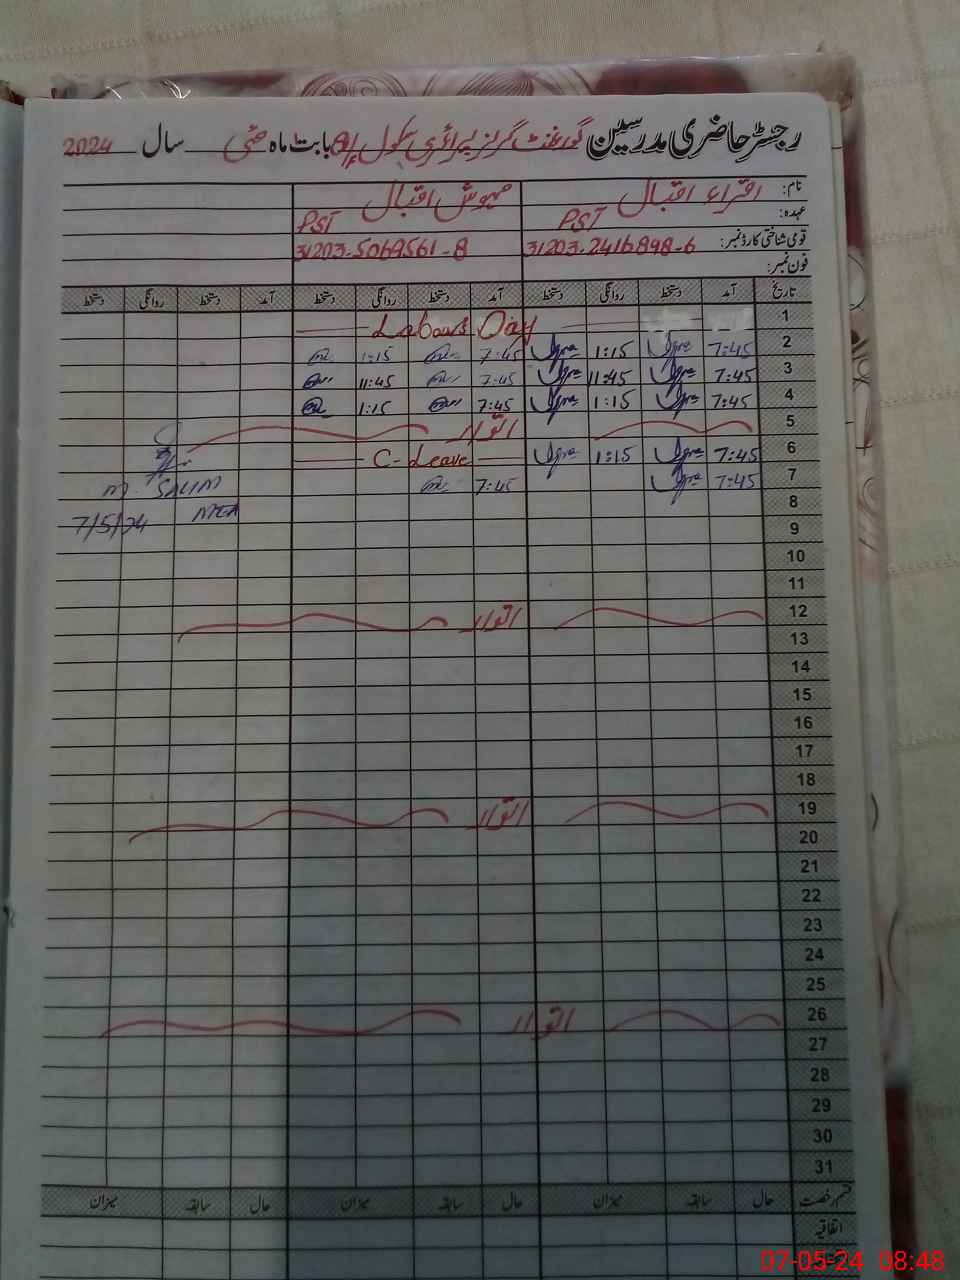 رجسٹر حاضری مدرسین گورنمنٹ گرلز پرائمری سکول بابت ماہ مئی سال 2024
نام: اقراء اقبال مہوش اقبال
عہدہ: PST PST
قومی شناختی کارڈ نمبر: 31203-2416898-6 31203-5069561-8
فون نمبر:
تاریخ آمد دستخط روانگی دستخط آمد دستخط روانگی دستخط آمد دستخط روانگی دستخط
1 Labour Day
2 7:45 1:15 7:45 1:15
3 7:45 11:45 7:45 11:45
4 7:45 1:15 7:45 1:15
5 اتوار
6 7:45 1:15 C-Leave
7 7:45 7:45 M. SALIM
8
9 7/5/24
10
11
12 اتوار
13
14
15
16
17
18
19 اتوار
20
21
22
23
24
25
26 اتوار
27
28
29
30
31
قسم رخصت حال سابقہ میزان حال سابقہ میزان حال سابقہ میزان
اتفاقیہ
07-05-24 08:48